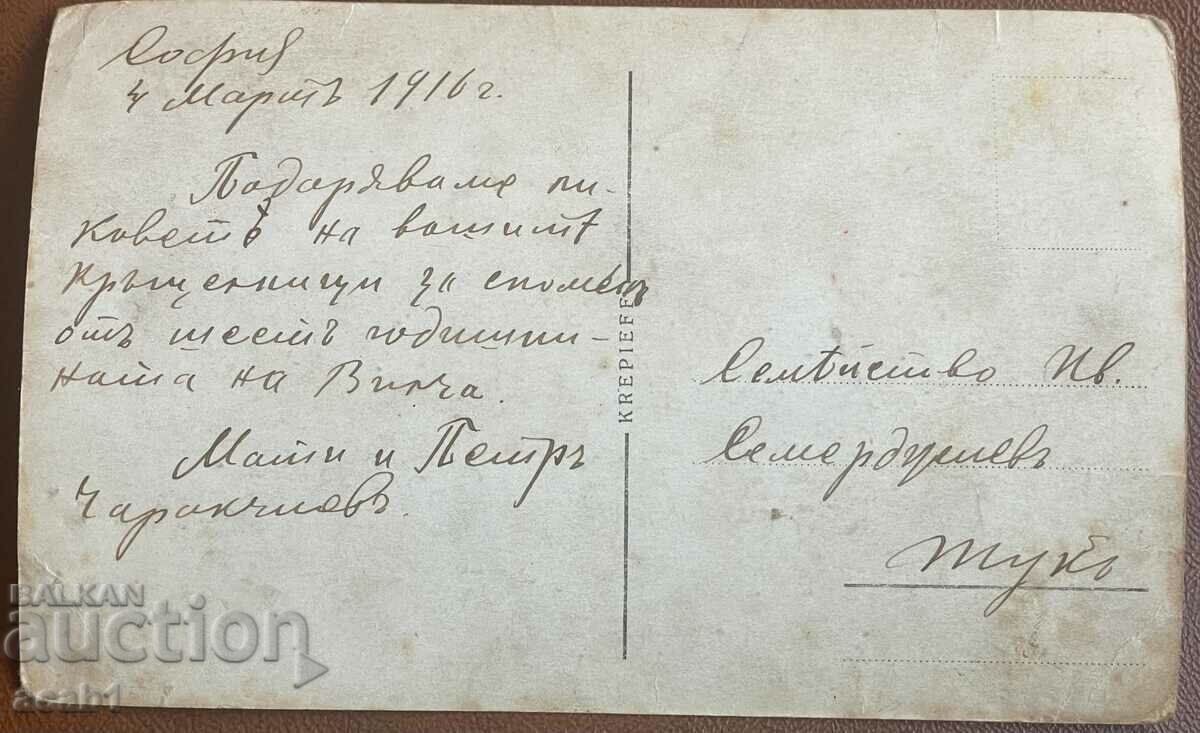 София
4 Мартъ 1916 г.
Подаряваме ли-
коветѣ на вашитѣ
кръщелници за споменъ
отъ шестъ годишни-
ната на Вилча.
Мати и Петръ
Чаракчиевъ.
KREPIEFF
Семѣйство Ив.
Семерджиевъ
Тукъ
BALKAN
auction
asab1